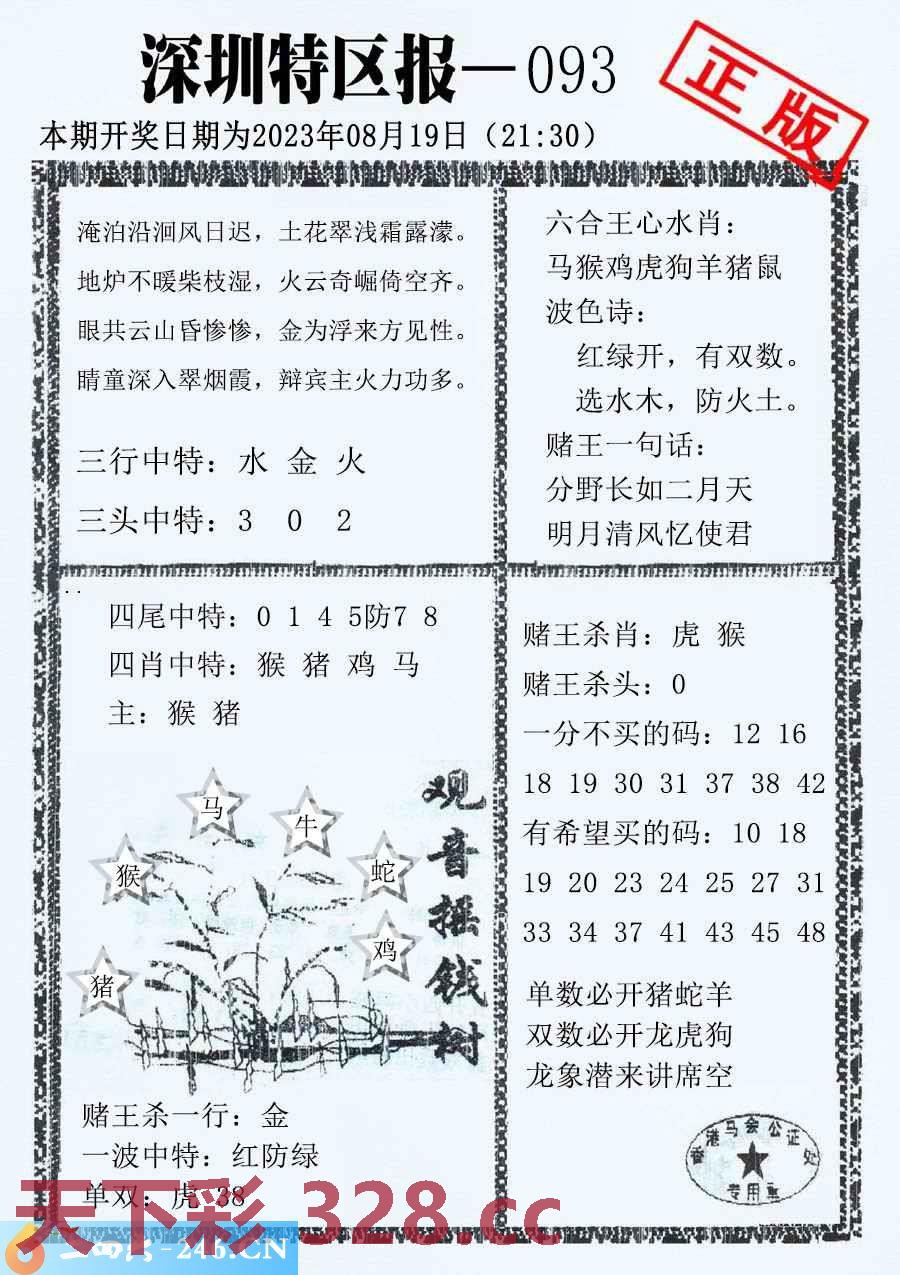 深圳特区报—093
正版
本期开奖日期为2023年08月19日（21:30）
淹泊沿洄风日迟，土花翠浅霜露濛。
地炉不暖柴枝湿，火云奇崛倚空齐。
眼共云山昏惨惨，金为浮来方见性。
睛童深入翠烟霞，辩宾主火力功多。
三行中特：水 金 火
三头中特：3 0 2
六合王心水肖：
马猴鸡虎狗羊猪鼠
波色诗：
红绿开，有双数。
选水木，防火土。
赌王一句话：
分野长如二月天
明月清风忆使君
四尾中特：0 1 4 5防7 8
四肖中特：猴 猪 鸡 马
主：猴 猪
马
牛
猴
蛇
鸡
猪
观音摇钱树
赌王杀一行：金
一波中特：红防绿
单双：虎 38
赌王杀肖：虎 猴
赌王杀头：0
一分不买的码：12 16
18 19 30 31 37 38 42
有希望买的码：10 18
19 20 23 24 25 27 31
33 34 37 41 43 45 48
单数必开猪蛇羊
双数必开龙虎狗
龙象潜来讲席空
香港马会公证处
专用章
天下彩 328.cc
-246.CN